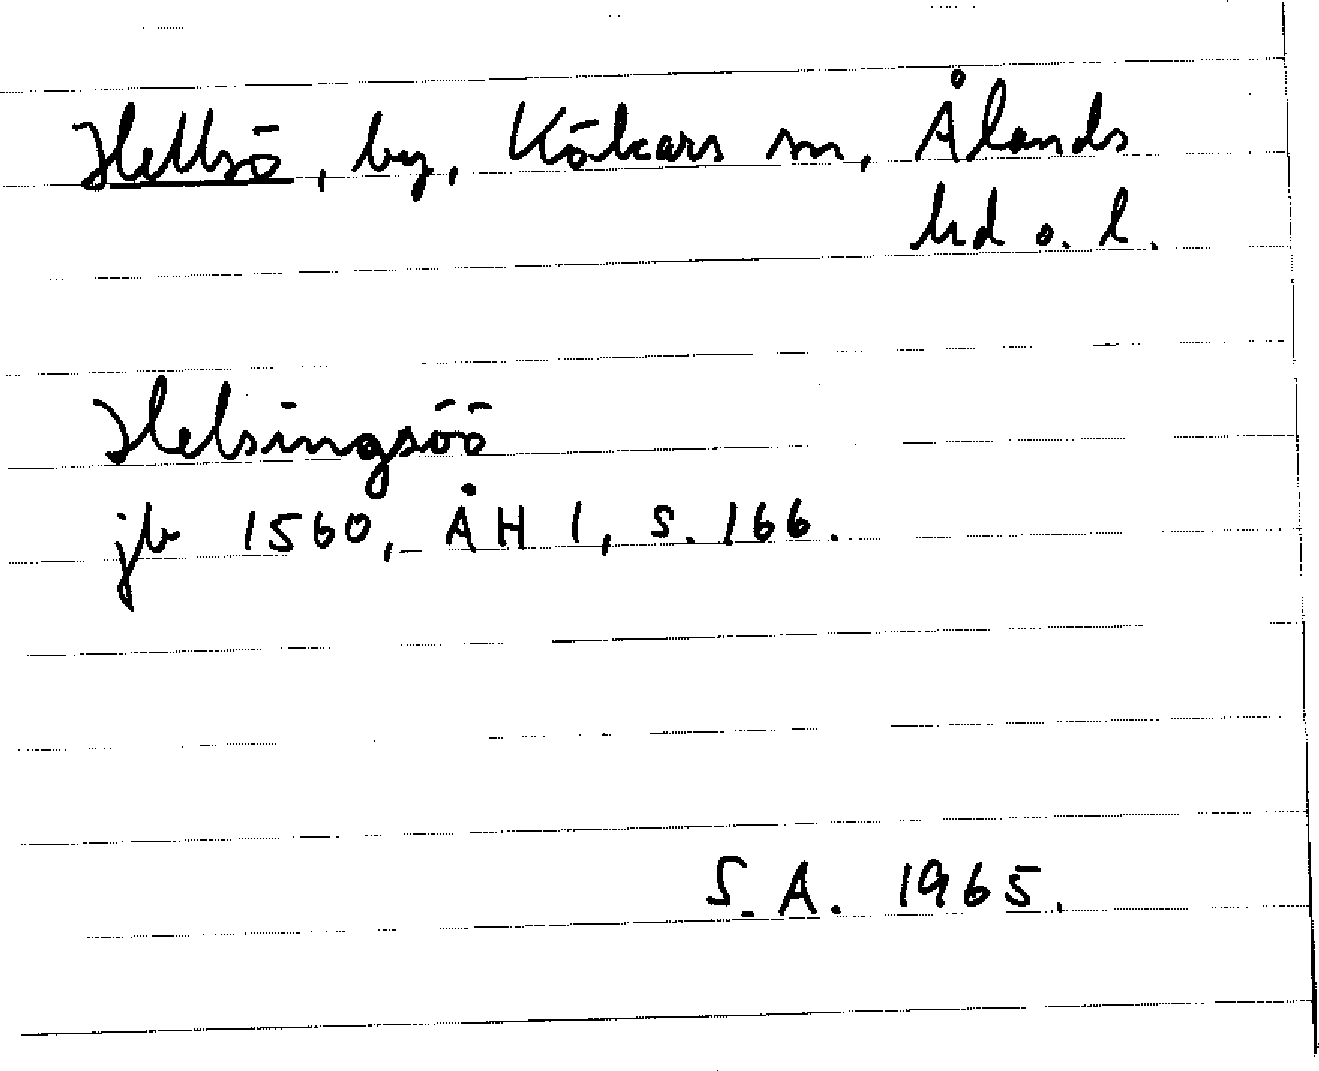 Hellsö, by, Kökars sn, Ålands
hd o. l.
Helsingsöö
jb 1560, ÅH 1, s. 166.
S. A. 1965.